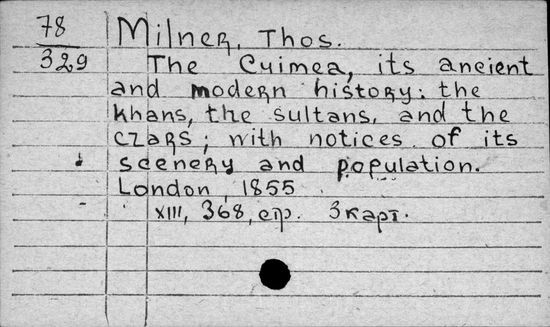 78
329
Milner, Thos.
The Cuimea, its aneient
and modern history: the
khans, the sultans, and the
czars; with notices of its
scenery and population.
London, 1855
XIII, 368, стр. 3 карт.